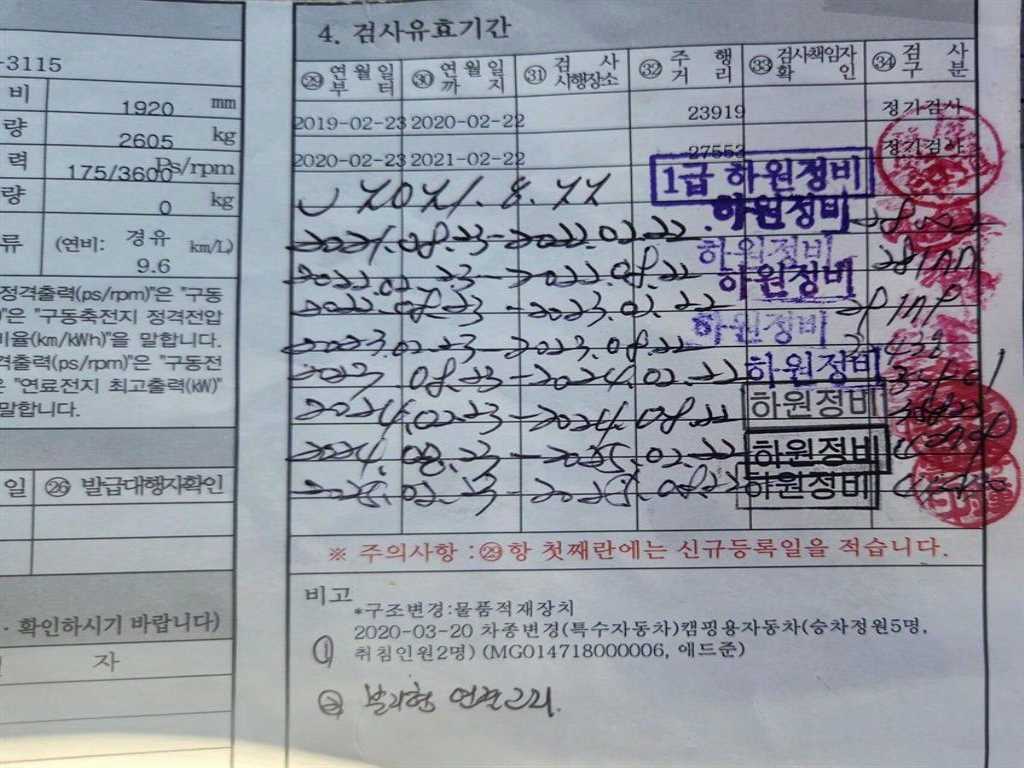 -3115
비 1920 mm
량 2605 kg
력 175/3600 Ps/rpm
량 0 kg
류 (연비: 경유 9.6 km/L)
정격출력(ps/rpm)"은 "구동
"은 "구동축전지 정격전압
비율(km/kWh)"을 말합니다.
격출력(ps/rpm)"은 "구동전
은 "연료전지 최고출력(kW)"
말합니다.
일 ㉖ 발급대행자확인
· 확인하시기 바랍니다)
자
4. 검사유효기간
㉙ 연월일부터 ㉚ 연월일까지 ㉛ 검사시행장소 ㉜ 주행거리 ㉝ 검사책임자확인 ㉞ 검사구분
2019-02-23 2020-02-22 23919 정기검사
2020-02-23 2021-02-22 27553 정기검사
2021.8.22 1급 하원정비
2021.08.23-2022.02.22 하원정비
2022.02.23-2022.08.22 하원정비
하원정비
2022.08.23-2023.02.22
2023.02.23-2023.08.22 하원정비
2023.08.23-2024.02.22 하원정비
2024.02.23-2024.08.22 하원정비
2024.08.23-2025.02.22 하원정비
2025.02.23-2025.08.22 하원정비
※ 주의사항 : ㉙항 첫째란에는 신규등록일을 적습니다.
비고
*구조변경:물품적재장치
2020-03-20 차종변경(특수자동차)캠핑용자동차(승차정원5명,
① 취침인원2명) (MG014718000006, 애드준)
② 분리형 연결고리.